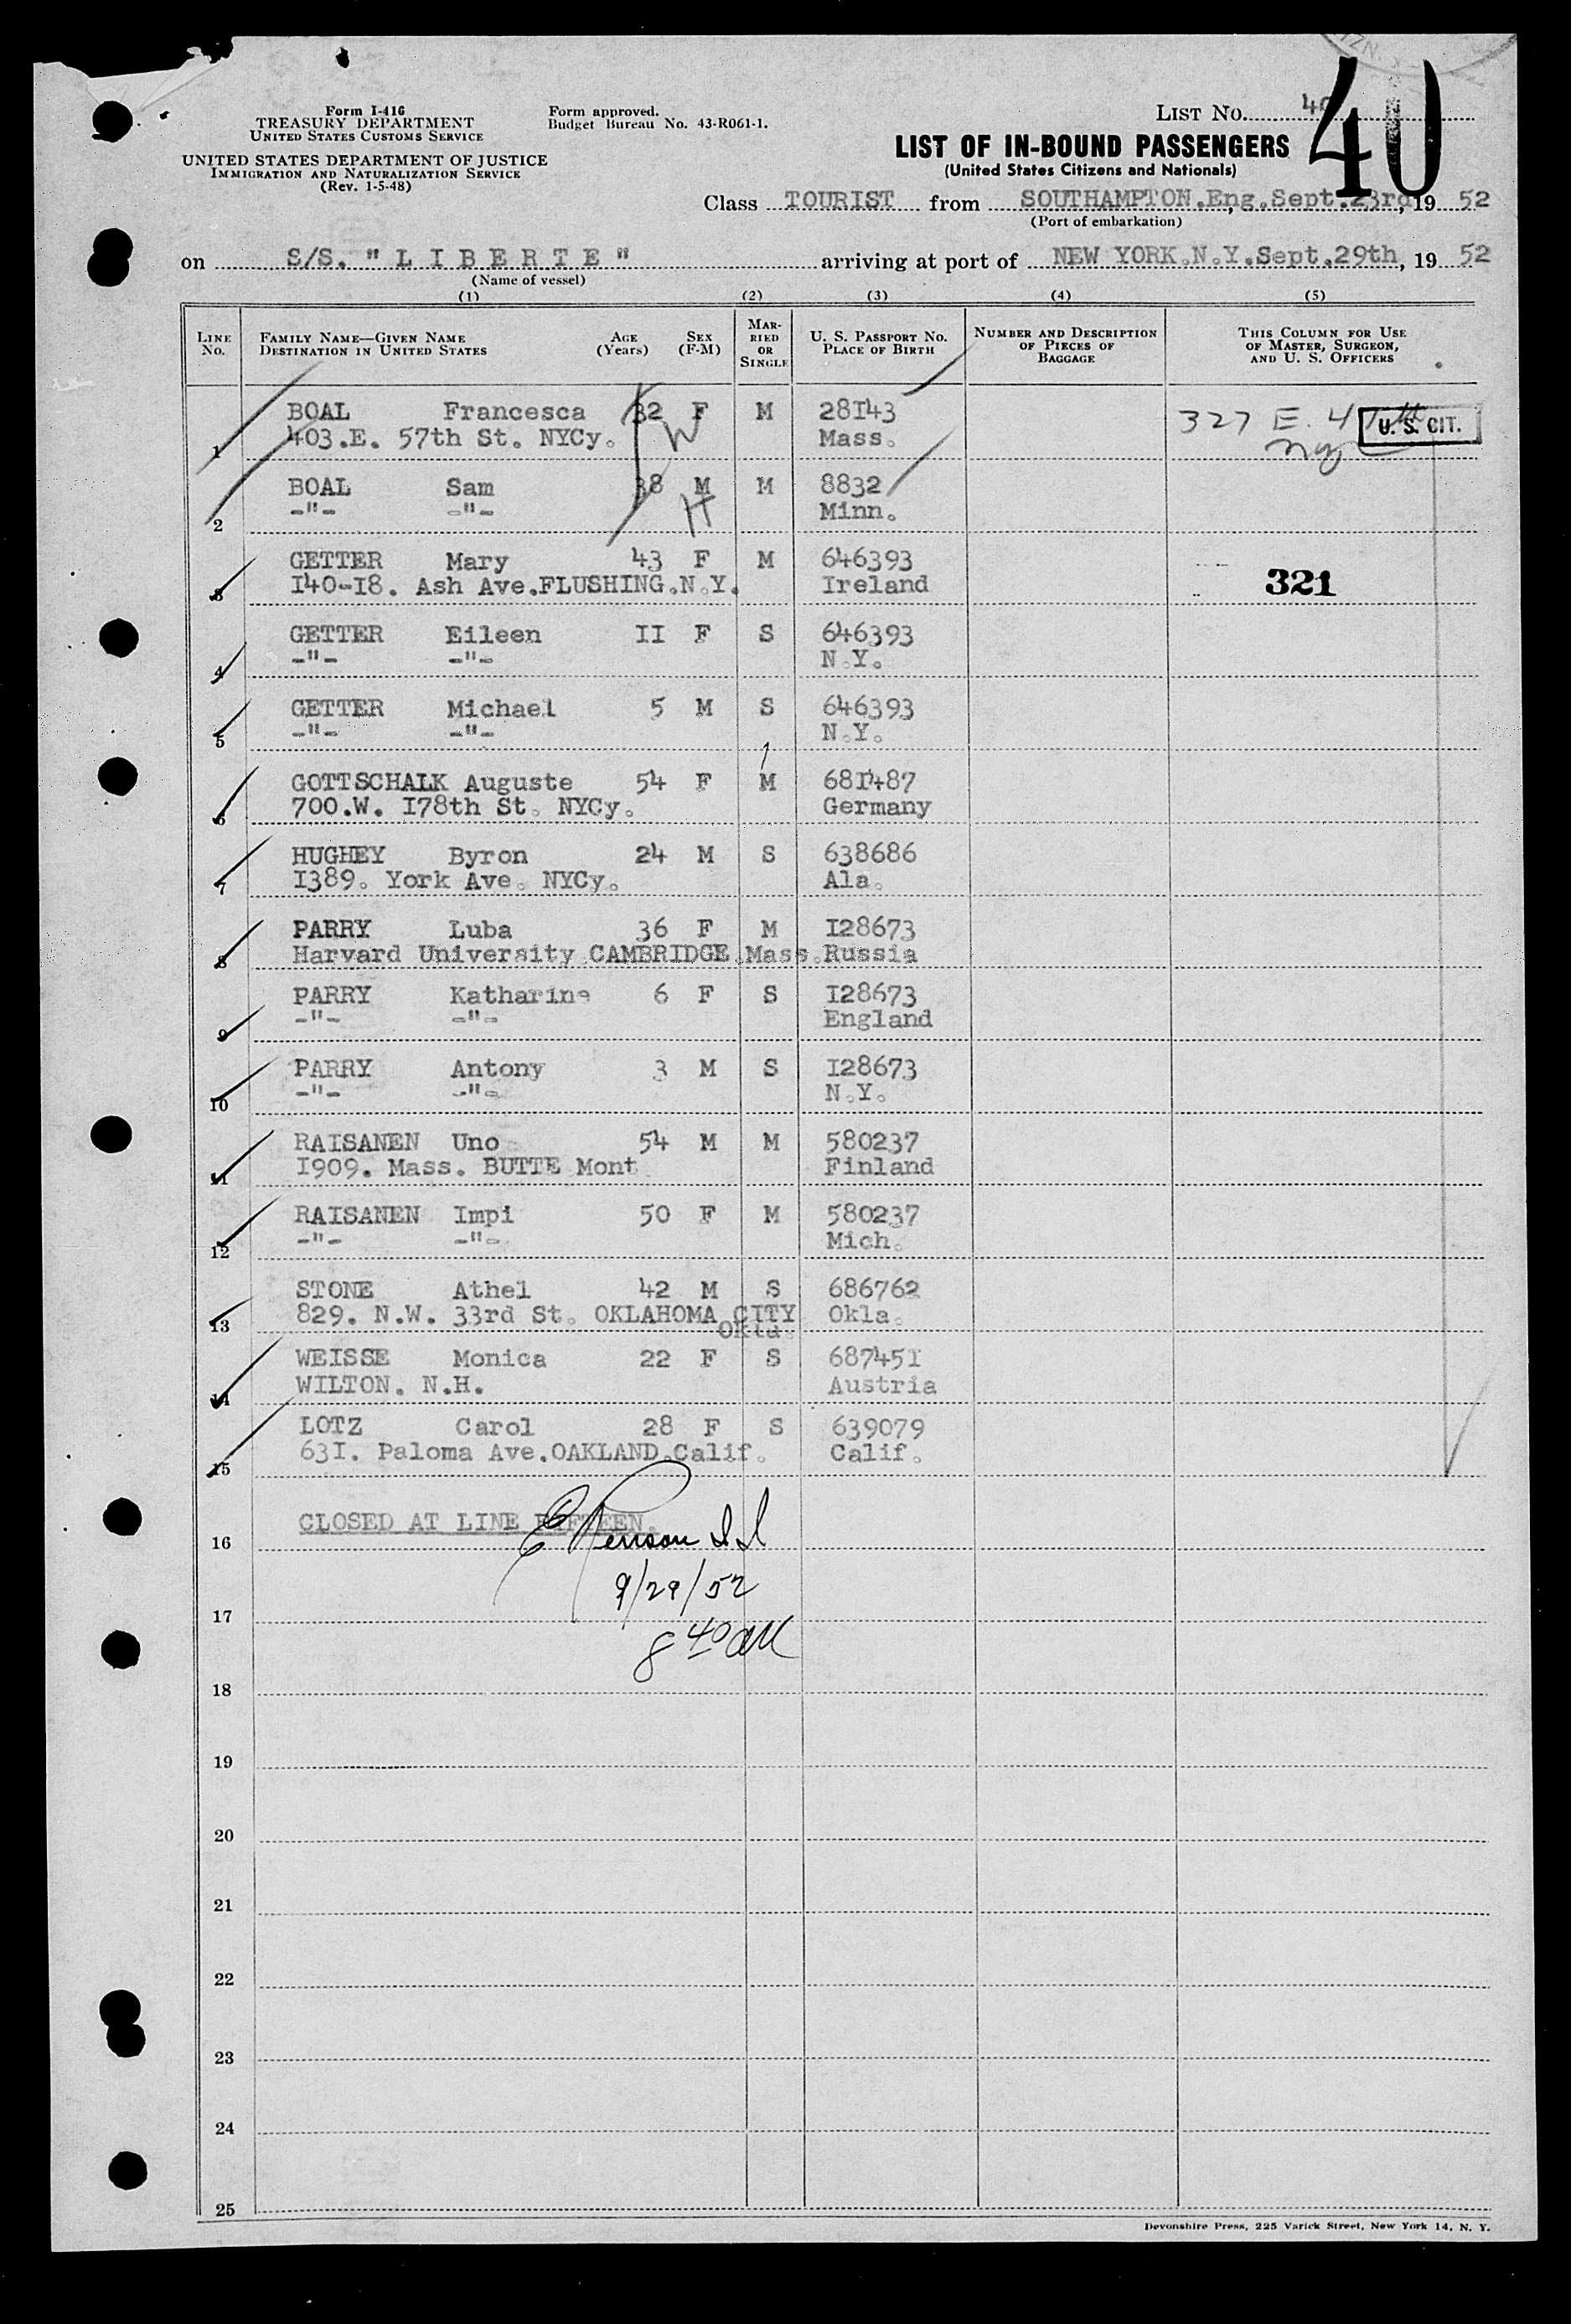 Form I-416
TREASURY DEPARTMENT
UNITED STATES CUSTOMS SERVICE
UNITED STATES DEPARTMENT OF JUSTICE
IMMIGRATION AND NATURALIZATION SERVICE
(Rev. 1-5-48)
Form approved.
Budget Bureau No. 43-R061-1.
LIST No. 40
40
LIST OF IN-BOUND PASSENGERS
(United States Citizens and Nationals)
Class TOURIST from SOUTHAMPTON.Eng.Sept.23rd, 19 52
(Port of embarkation)
on S/S. " L I B E R T E " arriving at port of NEW YORK.N.Y.Sept.29th, 19 52
(Name of vessel)
(1) (2) (3) (4) (5)
LINE No. FAMILY NAME—GIVEN NAME DESTINATION IN UNITED STATES AGE (Years) SEX (F-M) MARRIED OR SINGLE U. S. PASSPORT NO. PLACE OF BIRTH NUMBER AND DESCRIPTION OF PIECES OF BAGGAGE THIS COLUMN FOR USE OF MASTER, SURGEON, AND U. S. OFFICERS
BOAL Francesca 32 F M 28I43 327 E. 41th U. S. CIT.
1 403.E. 57th St. NYCy. W Mass. ny
BOAL Sam 38 M M 8832
2 -"- -"- H Minn.
GETTER Mary 43 F M 646393
3 I40-I8. Ash Ave.FLUSHING.N.Y. Ireland 321
GETTER Eileen II F S 646393
4 -"- -"- N.Y.
GETTER Michael 5 M S 646393
5 -"- -"- N.Y.
GOTTSCHALK Auguste 54 F M 68I487
6 700.W. I78th St. NYCy. Germany
HUGHEY Byron 24 M S 638686
7 I389. York Ave. NYCy. Ala.
PARRY Luba 36 F M I28673
8 Harvard University CAMBRIDGE.Mass.Russia
PARRY Katharine 6 F S I28673
9 -"- -"- England
PARRY Antony 3 M S I28673
10 -"- -"- N.Y.
RAISANEN Uno 54 M M 580237
11 I909. Mass. BUTTE Mont Finland
RAISANEN Impi 50 F M 580237
12 -"- -"- Mich.
STONE Athel 42 M S 686762
13 829. N.W. 33rd St. OKLAHOMA CITY Okla.
Okla.
WEISSE Monica 22 F S 68745I
14 WILTON. N.H. Austria
LOTZ Carol 28 F S 639079
15 63I. Paloma Ave.OAKLAND.Calif. Calif.
16 CLOSED AT LINE FIFTEEN.
9/29/52
17
8 40 AM
18
19
20
21
22
23
24
25
Devonshire Press, 225 Varick Street, New York 14, N. Y.